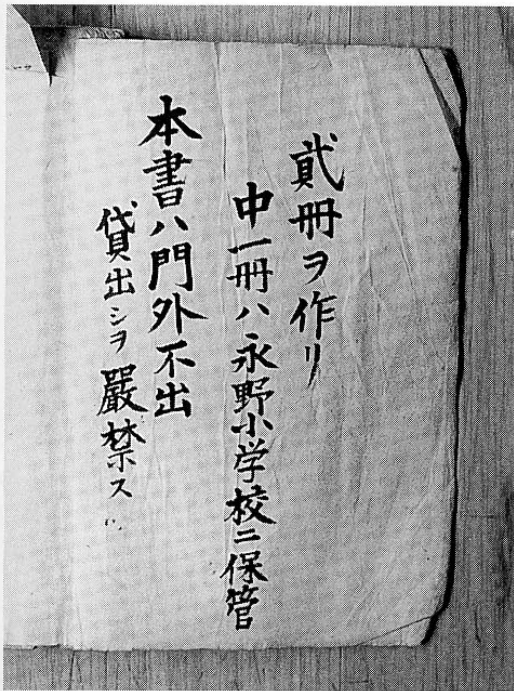 貳冊ヲ作リ
中一冊ハ永野小学校ニ保管
本書ハ門外不出
貸出シヲ嚴禁ス